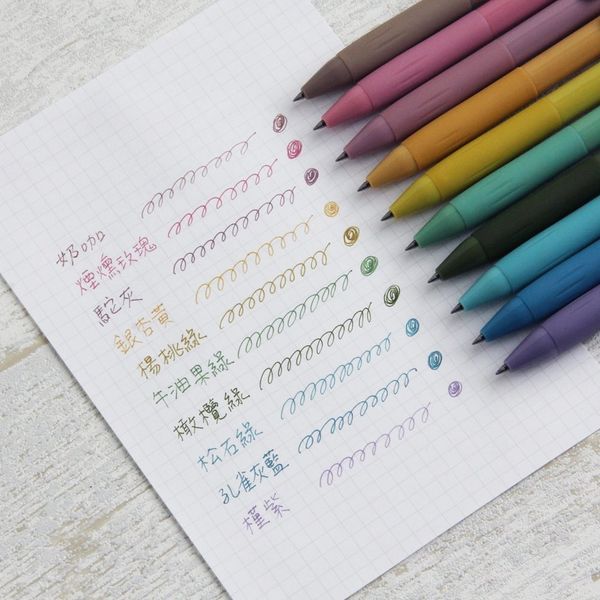 奶咖
煙燻玫瑰
駝灰
銀杏黃
楊桃綠
牛油果綠
橄欖綠
松石綠
孔雀灰藍
槿紫